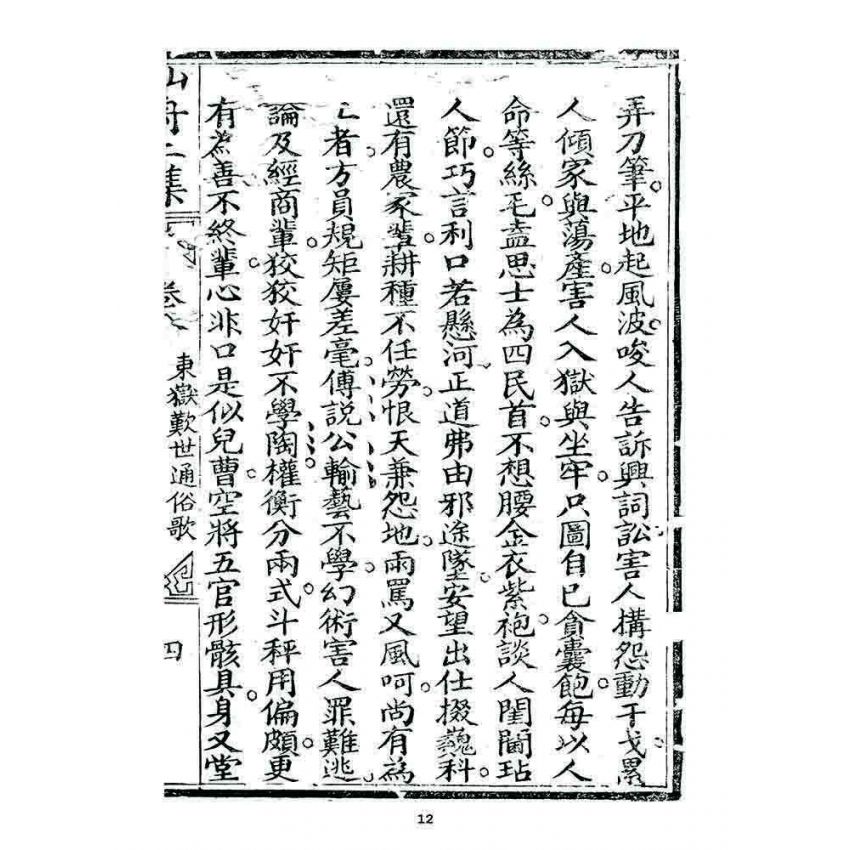 弄刀筆平地起風波唆人告訴興詞訟害人搆怨動干戈累
人傾家與蕩產害人入獄與坐牢只圖自已貪囊飽每以人
命等絲毛盍思士為四民首不想腰金衣紫袍談人閨閫玷
人節巧言利口若懸河正道弗由邪途墜安望出仕掇巍科
還有農豕輩耕種不任勞恨天兼怨地雨罵又風呵尚有為
亡者方員規矩屢差毫傅説公輸藝不學幻術害人罪難逃
論及經商輩狡狡奸奸不學陶權衡分兩式斗秤用偏頗更
有為善不終輩心非口是似兒曹空將五官形骸具身又堂
集 卷 東嶽歎世通俗歌 四
12